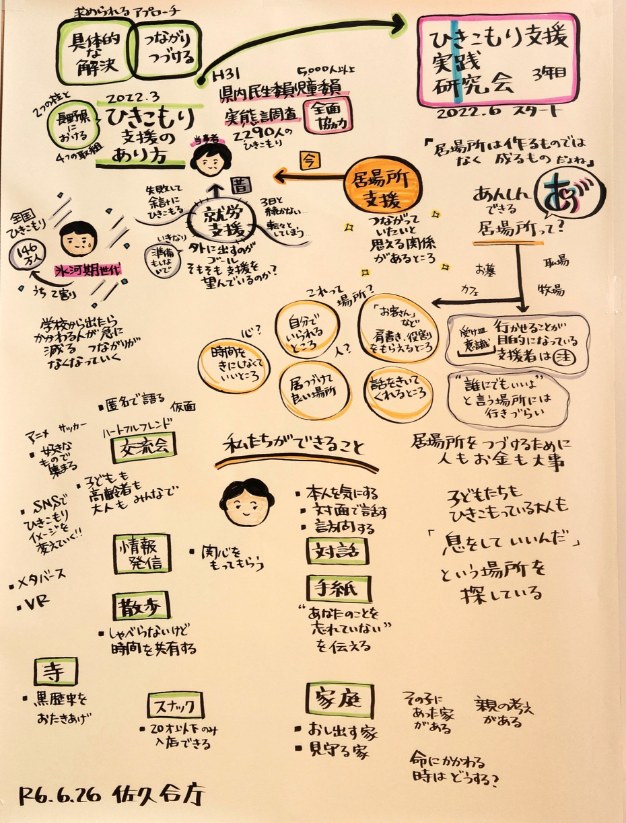 求められるアプローチ
具体的
な
解決
つながり
つづける
ひきこもり支援
実践
研究会 3年目
2022.6 スタート
H31 5000人以上
県内民生委員児童委員
実態調査
全面
協力
2290人の
ひきこもり
2つの柱と
長野県に
おける
4つの取組
2022.3
ひきこもり
支援の
あり方
当事者
今
居場所
支援
つながって
いたいと
思える関係
があるところ
「居場所は作るものでは
なく 成るもの だよね」
あんしん
できる
居場所って?
お墓
カフェ
牧場
昔
就労
支援
失敗して
余計に
ひきこもる
3日と
続かない
転々と
してしまう
いきなり
準備も
しないで
外に出すのが
ゴール
そもそも支援を
望んでいるのか?
全国
ひきこもり
146
万人
氷河期世代
うち1割
学校から出たら
かかわる人が急に
減る つながりが
なくなっていく
これって 場所?
心?
人?
時間を
きにしなくて
いいところ
自分で
いられる
ところ
「お客さん」
など
肩書き、役割
をもらえるところ
居つづけて
良い場所
話をきいて
くれるところ
受け皿
意識
行かせることが
目的になっている
支援者は
"誰にでもいいよ"
と言う場所には
行きづらい
居場所をつづけるために
人もお金も大事
私たちができること
・匿名で語る 仮面
アニメ サッカー
・好きな
もので
集まる
ハートフルフレンド
交流会
・子どもも
高齢者も
大人も みんなで
・SNSで
ひきこもり
イメージを
変えていく!!
・メタバース
・VR
情報
発信
・関心を
もってもらう
散歩
・しゃべらないけど
時間を共有する
・本人を気にする
・対面で話す
・訪問する
対話
手紙
"あなたのことを
忘れていない"
を伝える
子どもたちも
ひきこもっている大人も
「息をしていいんだ」
という場所を
探している
寺
・黒歴史を
おたきあげ
スナック
・20才以下のみ
入店できる
家庭
・おし出す家
・見守る家
その子に
あった家
がある
親の考え
がある
命にかかわる
時はどうする?
R6.6.26 佐久合庁